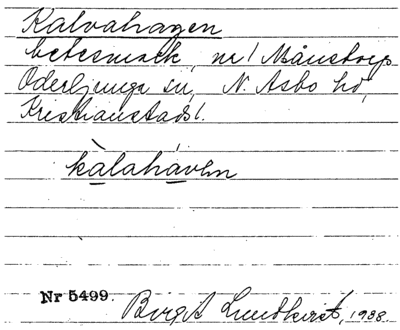 Kalvahagen
betesmark, nr 1 Månstorp
Oderljunga sn, N. Åsbo hd,
Kristianstads l.
kàlahávɘn
Nr 5499.
Birgit Lundkvist, 1938.